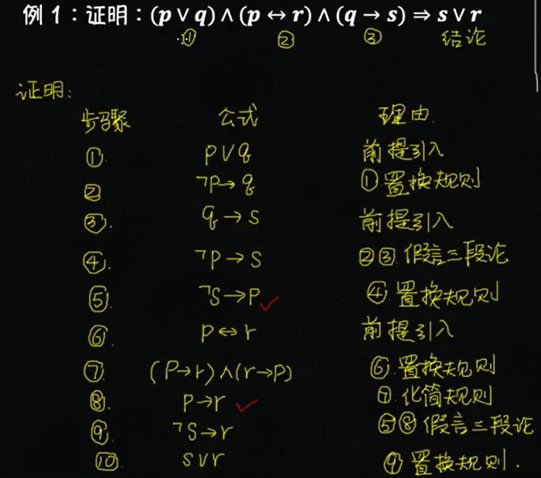 例 1：证明：(p ∨ q) ∧ (p ↔ r) ∧ (q → s) ⇒ s ∨ r
① ② ③ 结论
证明:
步骤 公式 理由
① p∨q 前提引入
② ¬P→q ①置换规则
③. q→s 前提引入
④. ¬P→S ②③.假言三段论
⑤. ¬S→P ④置换规则
⑥. P↔r 前提引入
⑦. (P→r)∧(r→P) ⑥.置换规则
⑧. P→r ⑦.化简规则
⑨. ¬S→r ⑤⑧假言三段论
⑩. S∨r ⑨置换规则.